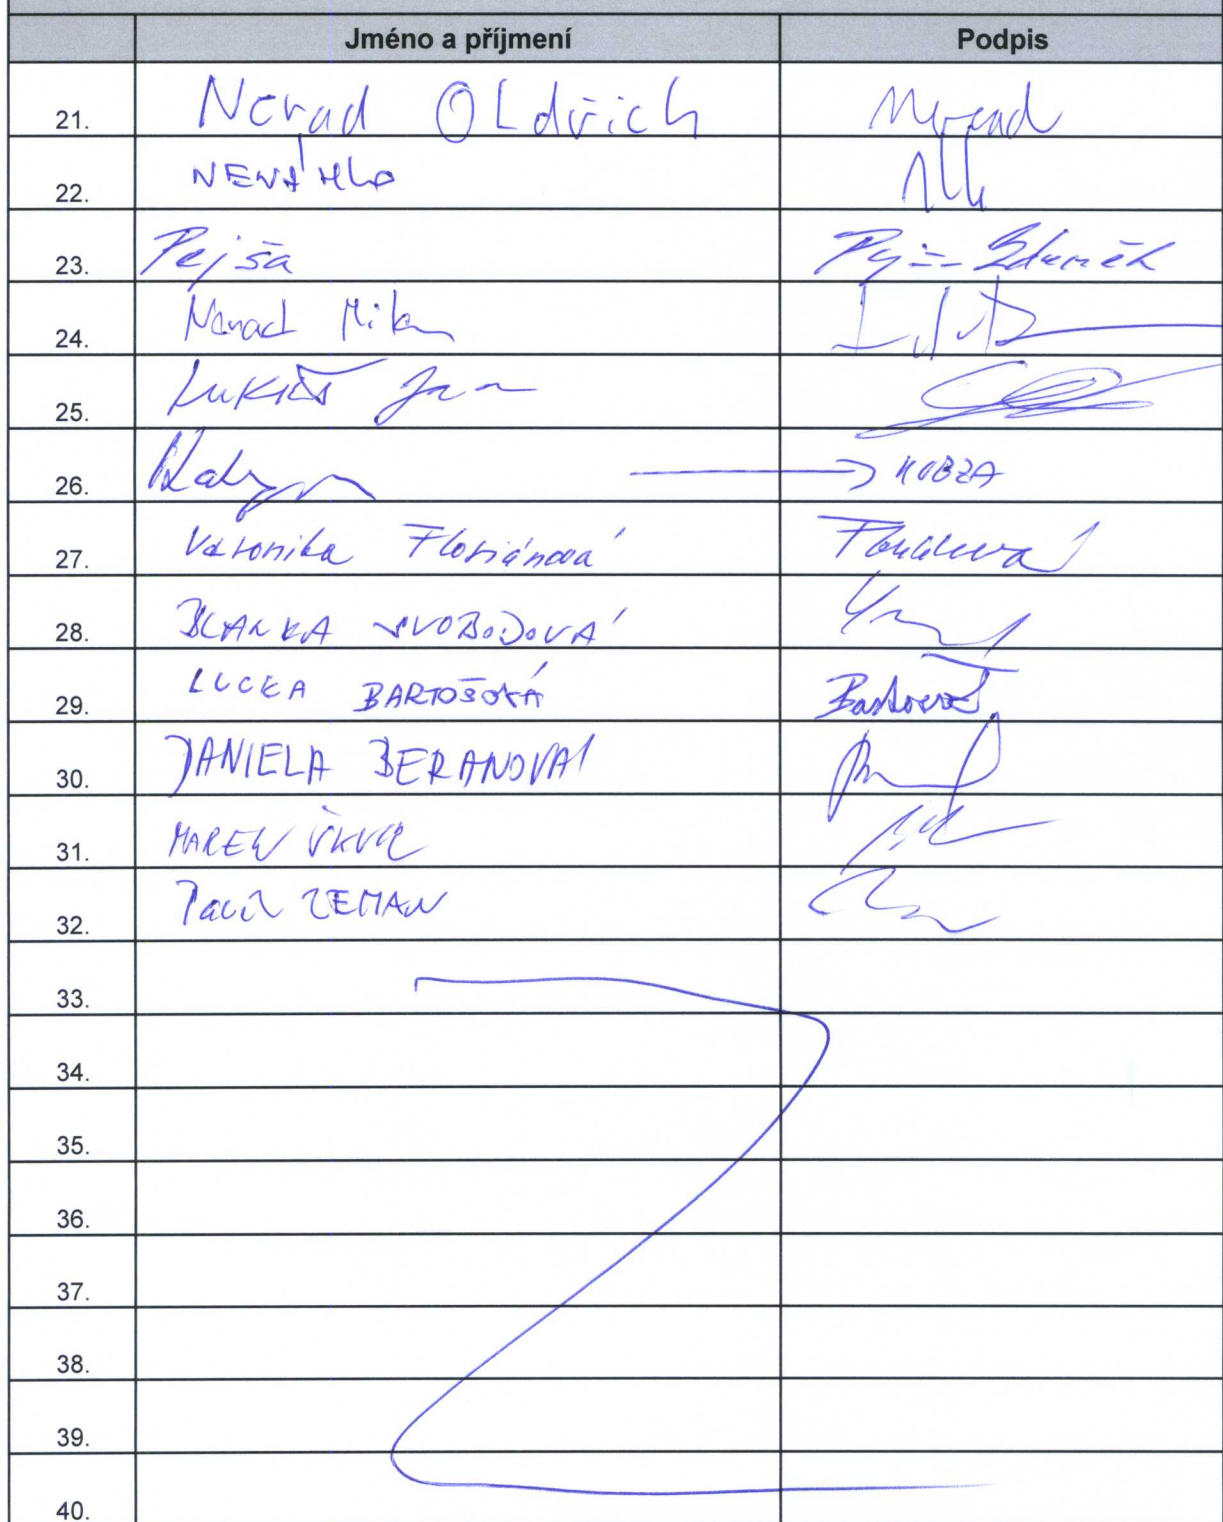 Jméno a příjmení Podpis
21. Nerad OLdřich Nerad
22. NENÁHLO
23. Pejša Zdeněk
24. Nerad Milan
25. Lukáš Jan
26. KOBZA
27. Veronika Floriánová
28. BLANKA SVOBODOVÁ
29. LUCKA BARTOŠOVÁ
30. DANIELA BERANOVÁ
31. MAREK
32. Pavel ZEMAN
33.
34.
35.
36.
37.
38.
39.
40.